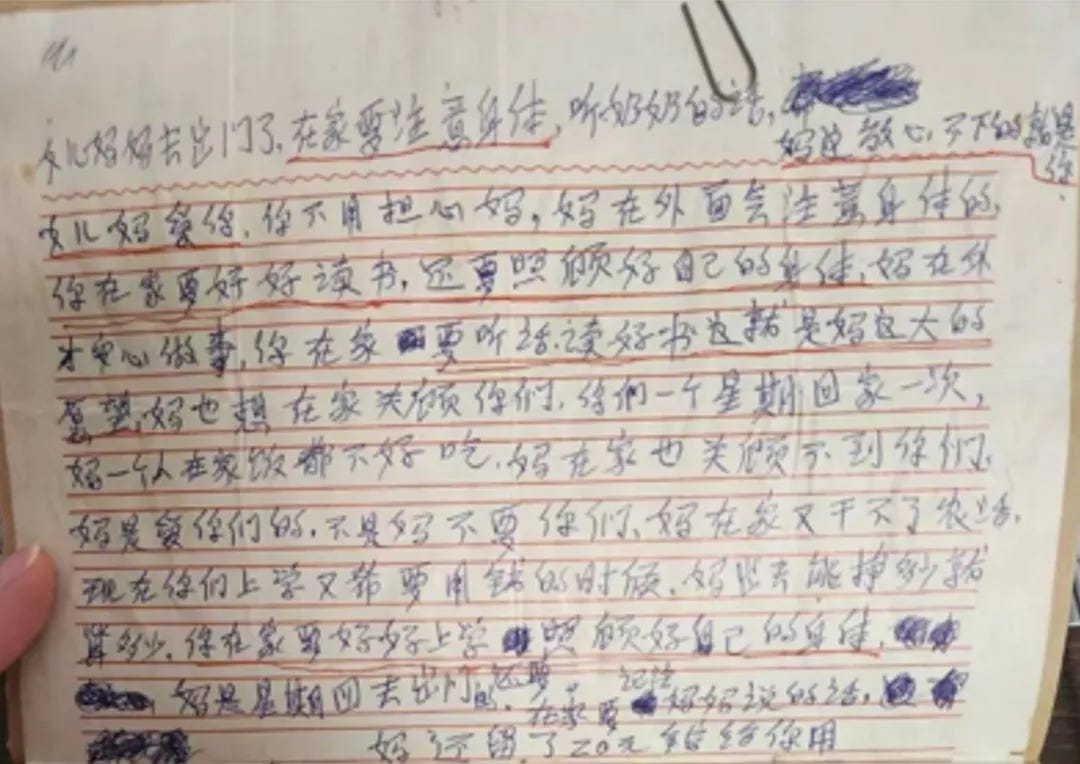 女儿妈妈去出门了,在家要注意身体,听奶奶的话,
妈这放心不下的就是你
女儿妈爱你,你不用担心妈,妈在外面会注意身体的,
你在家要好好读书,还要照顾好自己的身体,妈在外
才安心做事,你在家要听话,读好书这就是妈这大的
愿望,妈也想在家关顾你们,你们一个星期回家一次,
妈一个人在家饭都不好吃,妈在家也关顾不到你们,
妈是爱你们的,不是妈不要你们,妈在家又干不了农活,
现在你们上学又都要用钱的时候,妈出去能挣多少就
算多少,你在家要好好上学照顾好自己的身体,
妈是星期四去出门的,还要在家要记住妈妈说的话,
妈还留了20元给你用